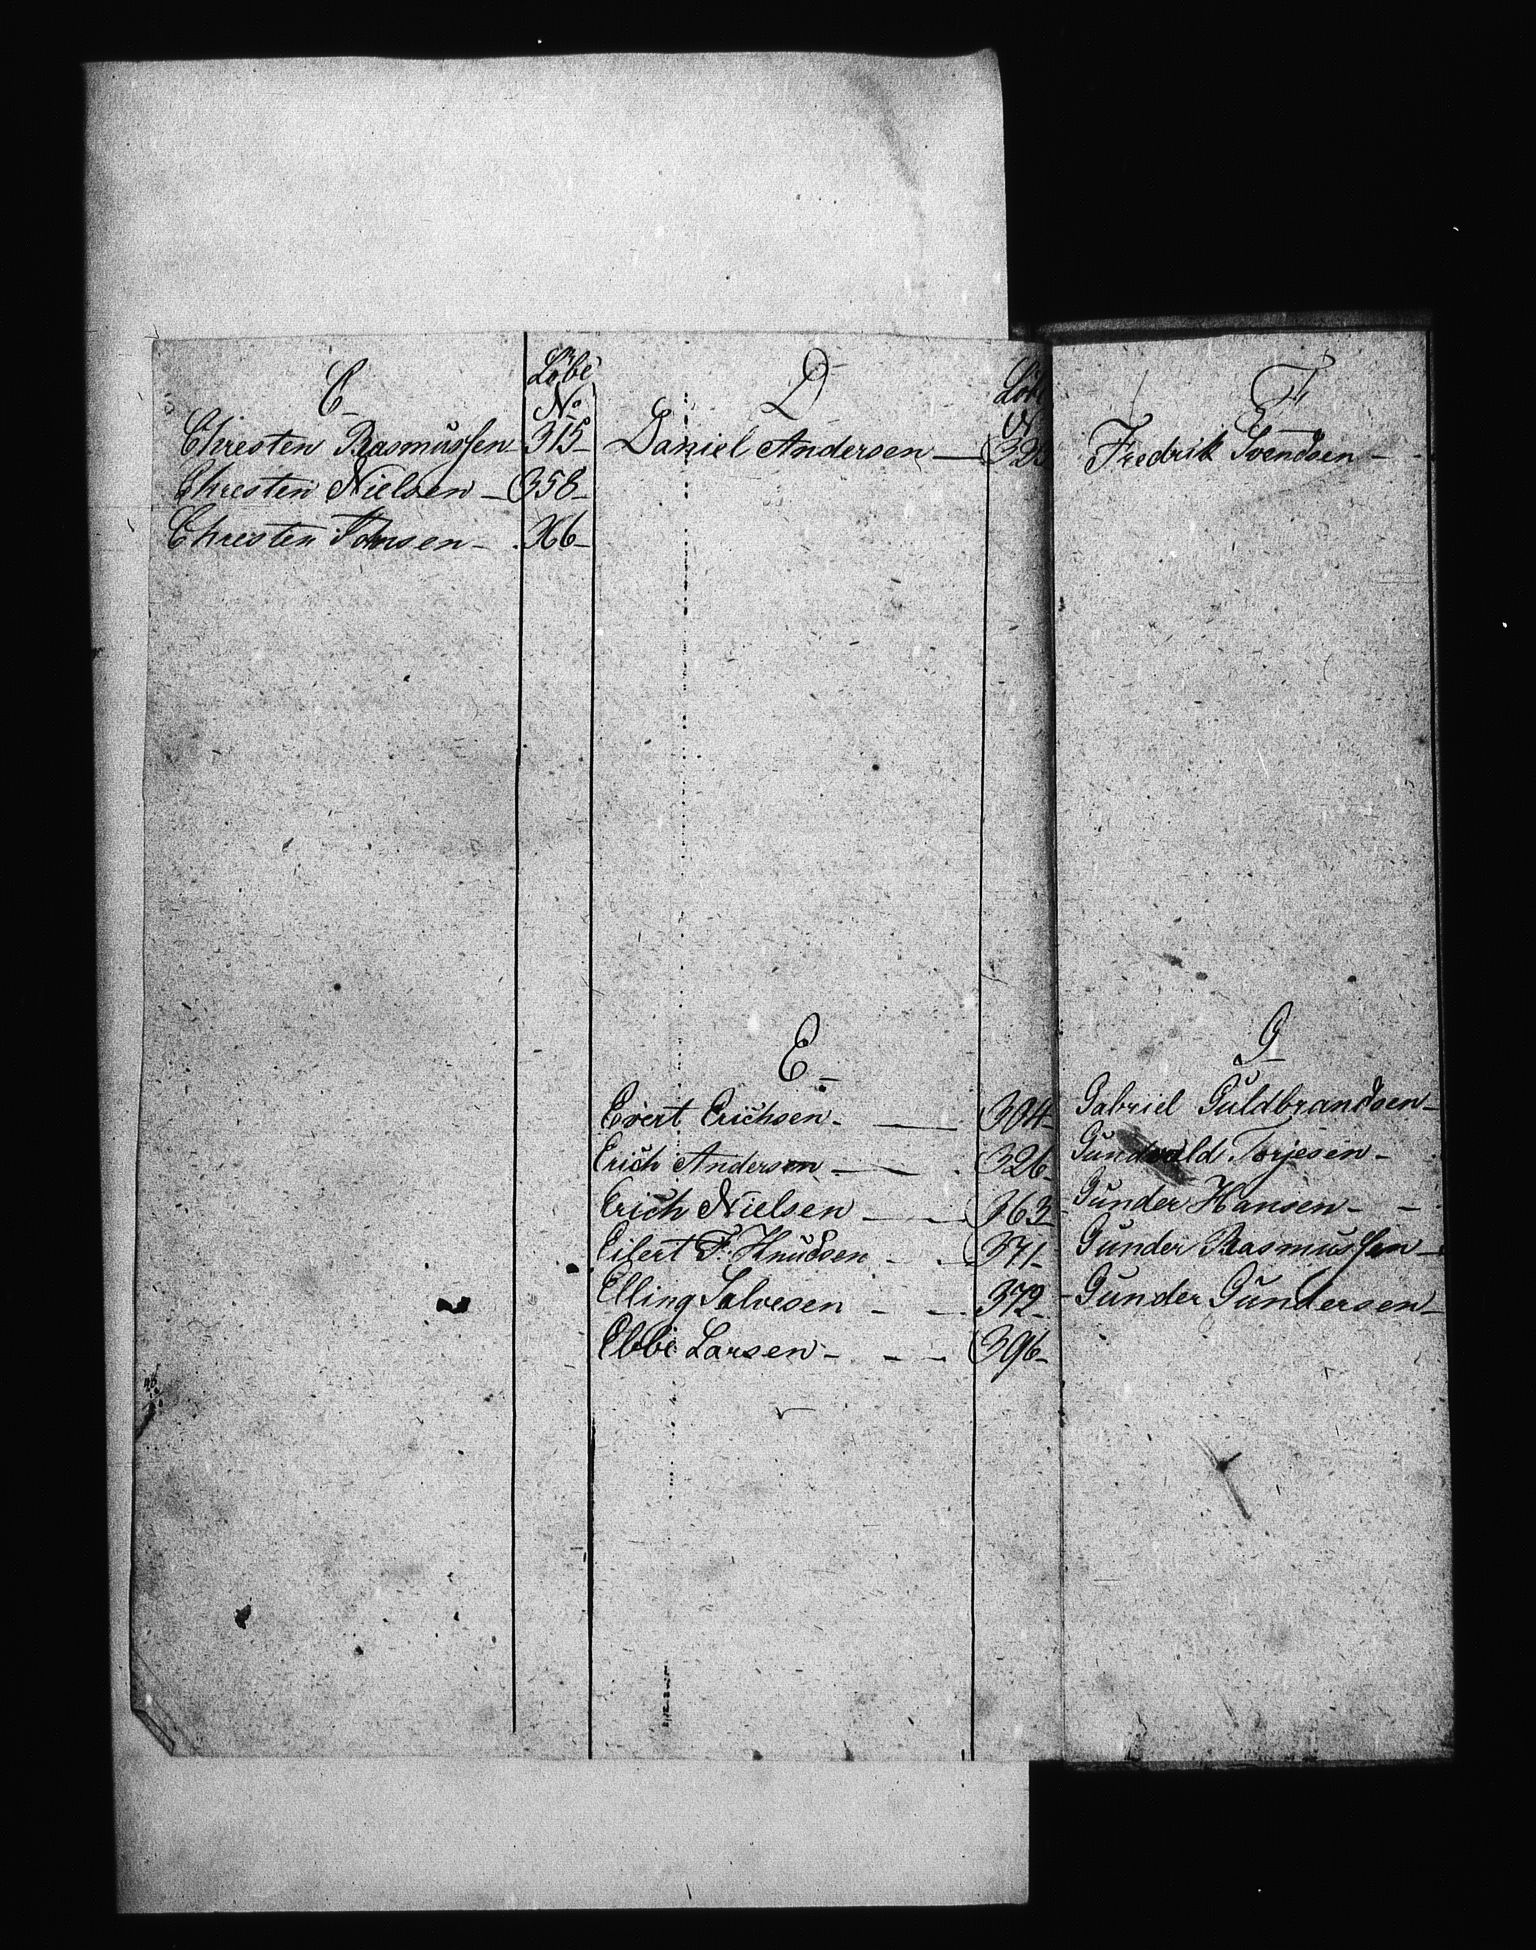 C
Löbe
No
Christen Rasmussen 315
Christen Nielsen 358
Christen Tomsen
D
Daniel Andersen
E
Evert Erichsen 304
Erich Andersen 326
Erich Nielsen 363
Eilert F. Knudsen 371
Elling Salvesen 372
Ebbe Larsen 396
F
Fredrik Svendsen
G
Gabriel Guldbrandsen
Gundvald Torjesen
Gunder Hansen
Gunder Rasmussen
Gunder Gundersen